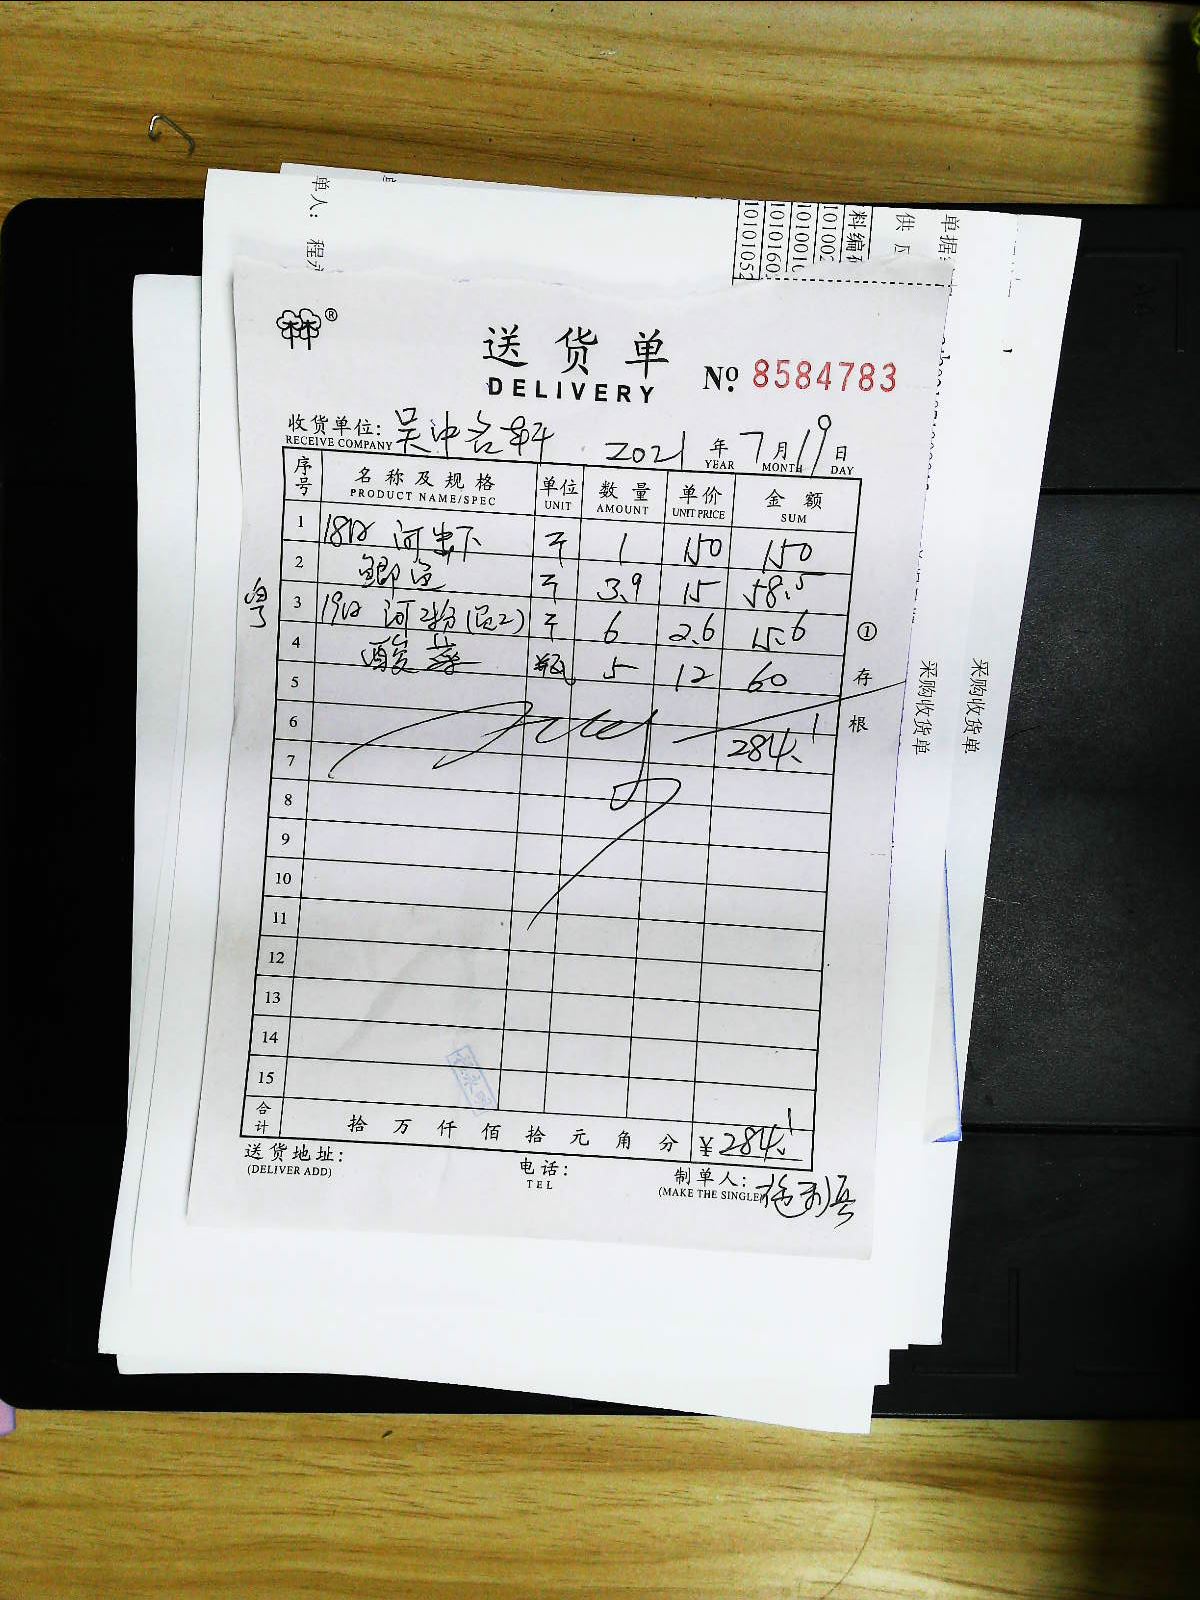 单人：程永
料编码
101002
1010010
1010160
10101052
供应
单据
采购收货单
采购收货单
®
送货单
DELIVERY
№ 8584783
收货单位：吴冲名轩 2021年7月19日
RECEIVE COMPANY YEAR MONTH DAY
序号 名称及规格 单位 数量 单价 金额
PRODUCT NAME/SPEC UNIT AMOUNT UNIT PRICE SUM
1 18日 河虾 斤 1 150 150
2 鲫鱼 斤 3.9 15 58.5
3 19日 河粉 斤 6 2.6 15.6
4 5 12 60
粤
5
6 284.1
7
8
9
10
11
12
13
14
15
①存根
合计 拾万仟佰拾元角分 ¥284.1
送货地址： 电话： 制单人：
(DELIVER ADD) TEL (MAKE THE SINGLE)